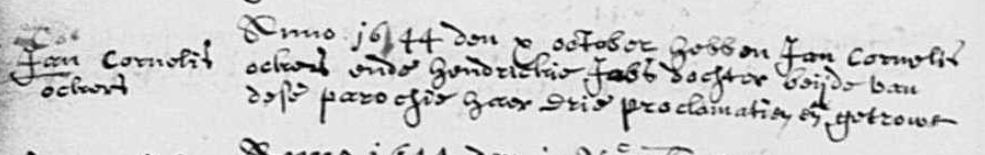 Jan Cornelis
ockers
Anno 1644 den x october hebben Jan Cornelis
ockers ende hendrickie Jabs dochter beijde van
dese parochie haer drie proclamatien en getrowt
Anno 1644 den